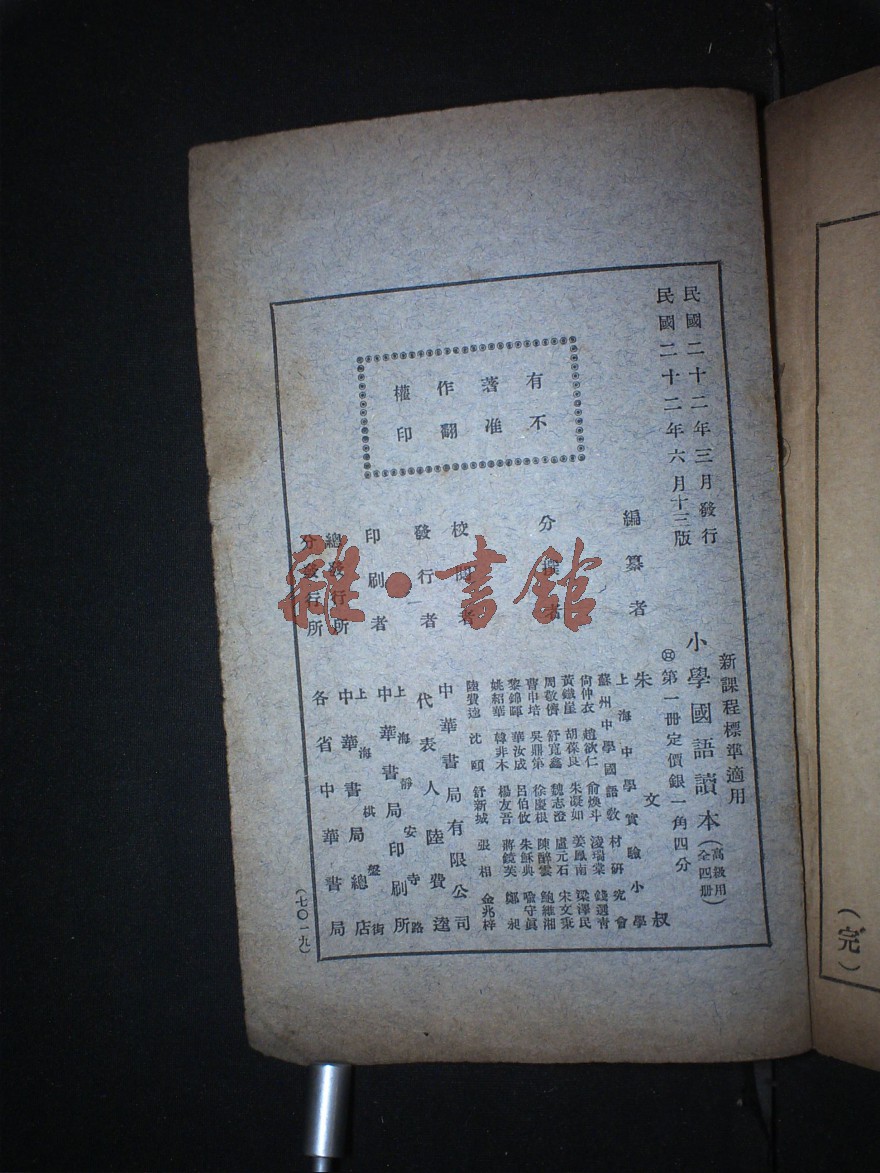 民國二十二年三月發行
民國二十二年六月十三版
新課程標準適用
小學國語讀本(高級用 全四冊)
第一冊定價銀一角四分
有著作權
不准翻印
編纂者
朱文叔
上海中學實驗小學
蘇州中學國語敎材研究會
分撰者
尙仲衣 趙欲仁 俞煥斗 淩瑞棠 錢選靑
黃鐵崖 胡葆良 朱凝如 姜鳳南 梁澤民
周敬儕 舒寬鑫 魏志澄 盧元石 宋文秉
曹申培 吳鼎第 徐慶根 陳醉雲 鮑維湘
黎錦暉 華汝成 呂伯攸 朱穌典 喻守眞
姚紹華 韓非木 楊友吾 蔣鏡芙 鄭昶
校閱者
陸費逵 沈頤 舒新城 張相 金兆梓
發行者
中華書局有限公司
代表人 陸費逵
印刷者
上海靜安寺路
中華書局印刷所
總發行所
上海棋盤街
中華書局總店
分發行所
各省中華書局
(七〇一九)
(完)
雜·書館